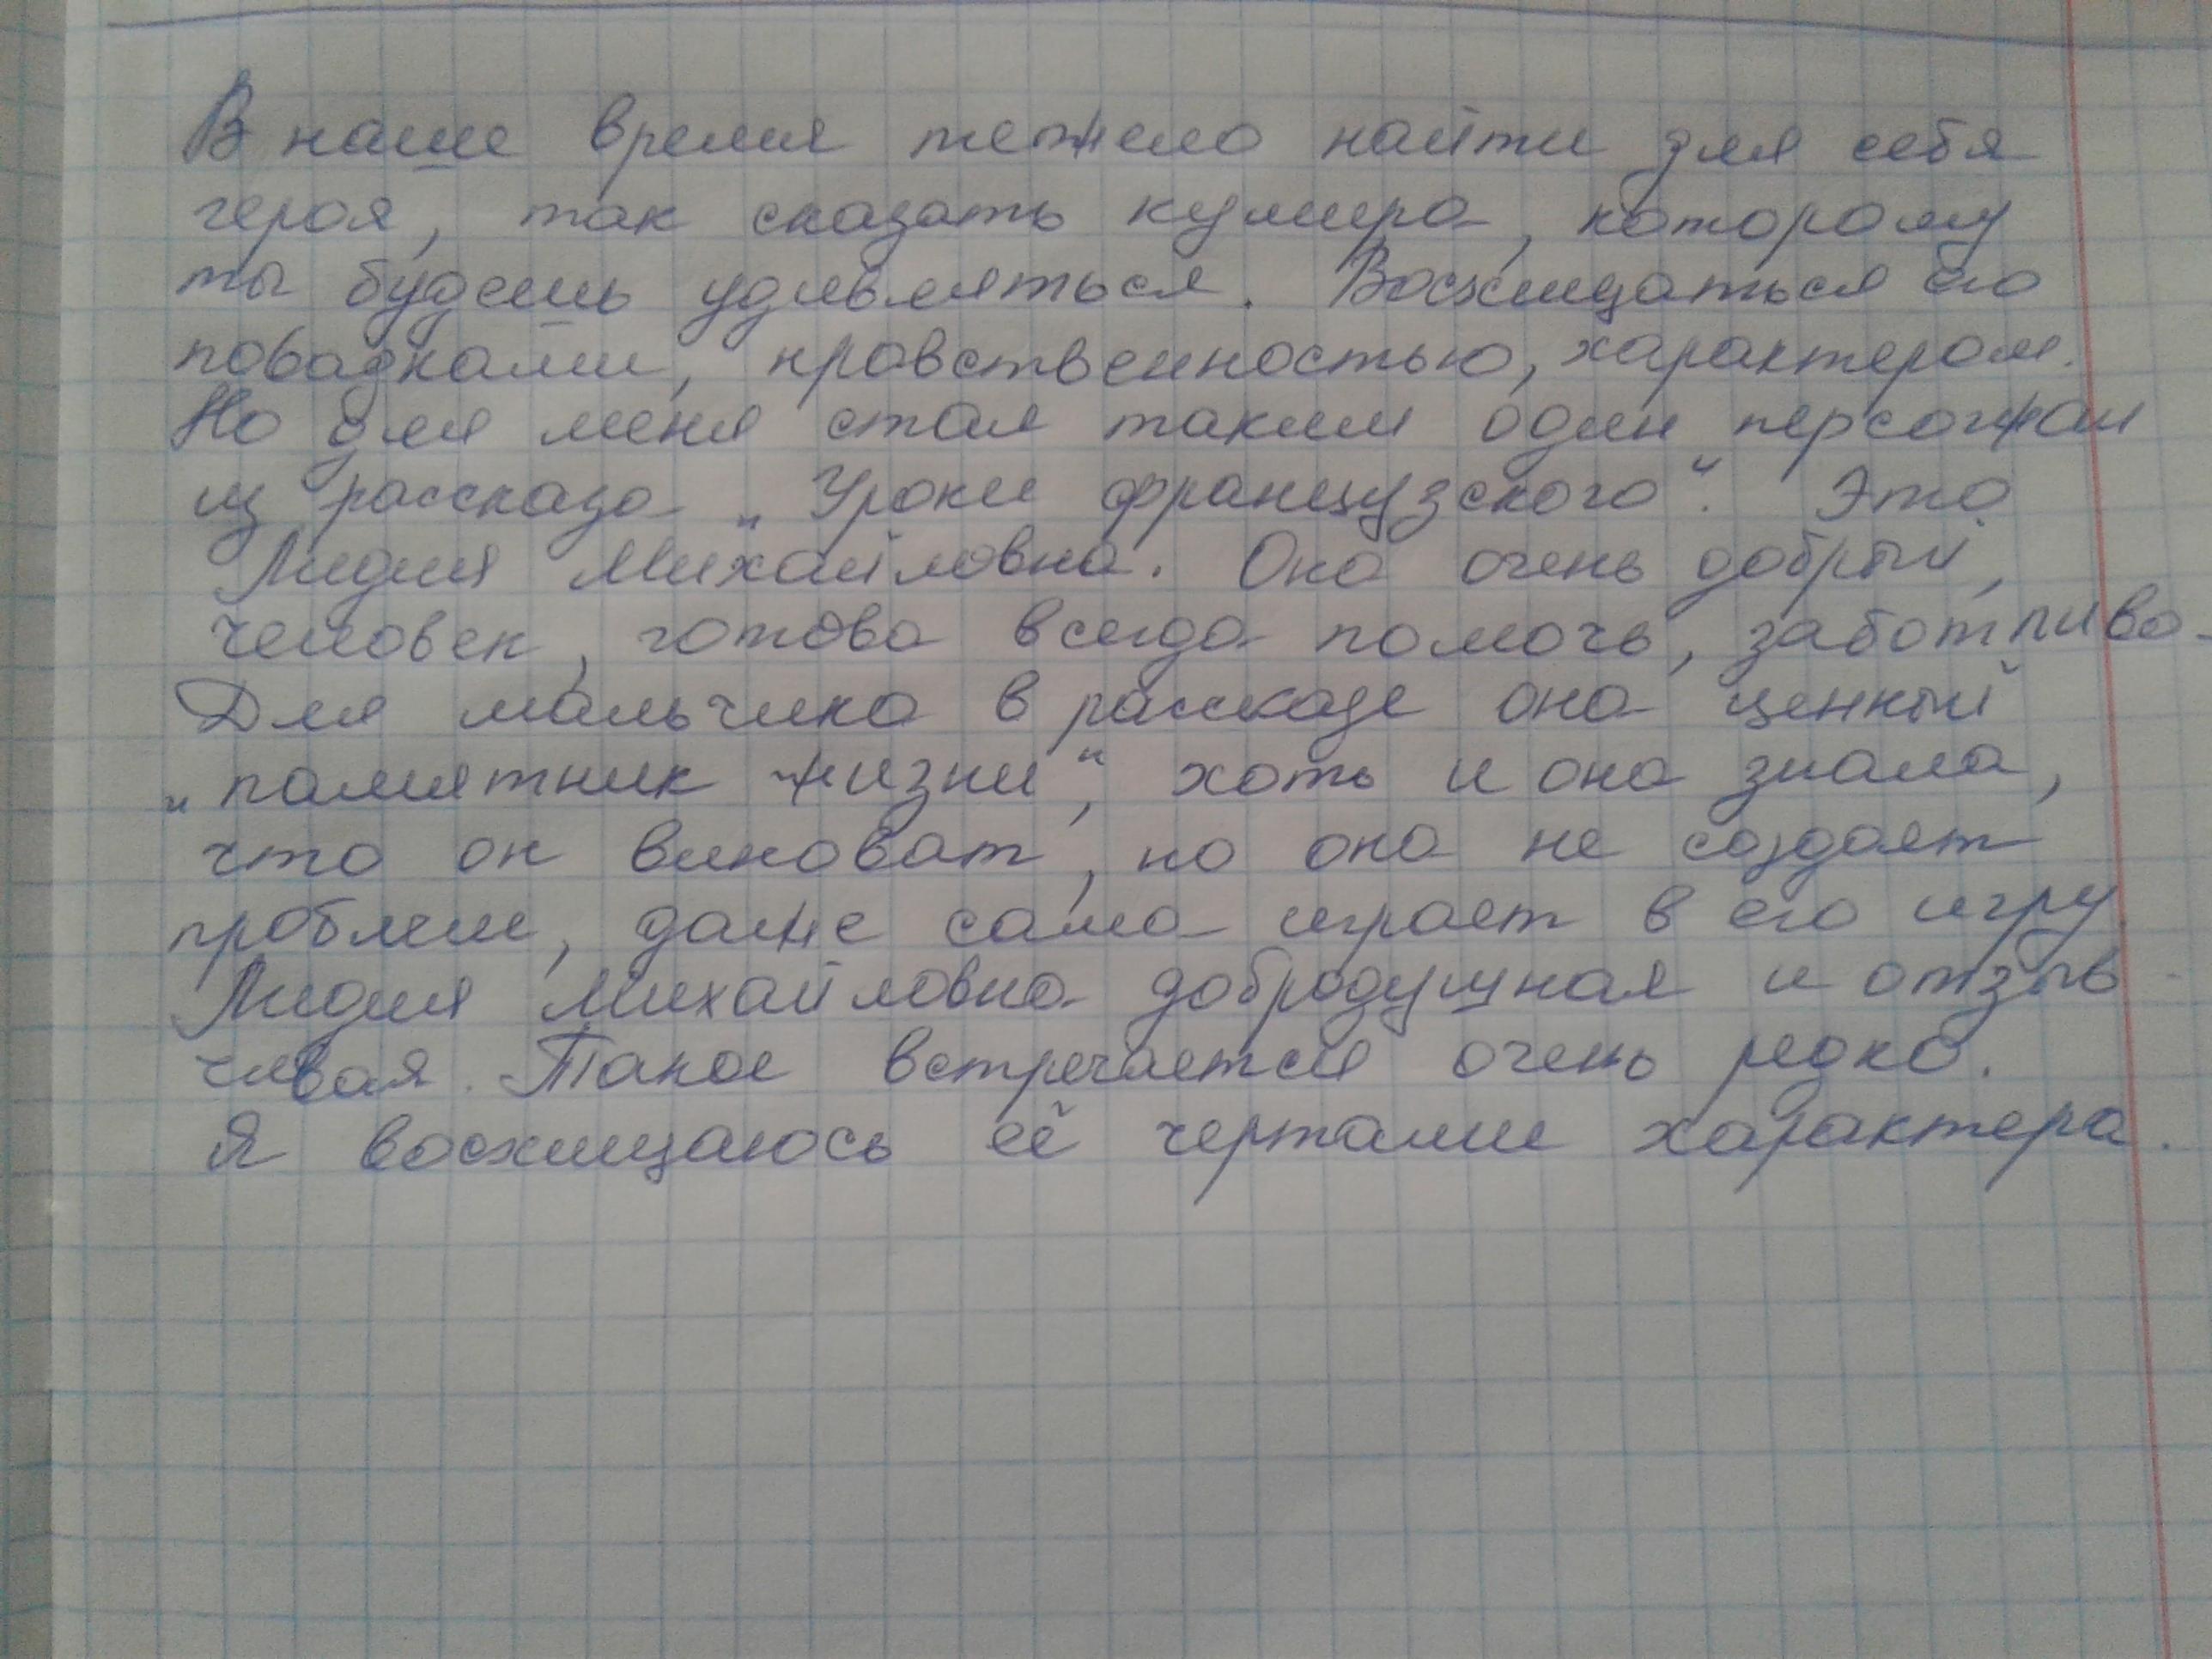 В наше время тежело найти для себя
героя, так сказать кумира, которому
ты будешь удивляться. Восхищаться его
повадками, нравственностью, характером.
Но для меня стал таким один персонжаи
из рассказа „Уроки французского“. Это
Лидия Михайловна. Она очень добрый,
человек, готова всегда помочь, заботлива.
Для мальчика в рассказе она ценный
„памятник жизни“, хоть и она знала,
что он виноват, но она не создает
проблем, даже сама играет в его игру.
Лидия Михайловна добродушная и отзыв-
чивая. Такое встречается очень редко.
Я восхищаюсь её чертами характера.